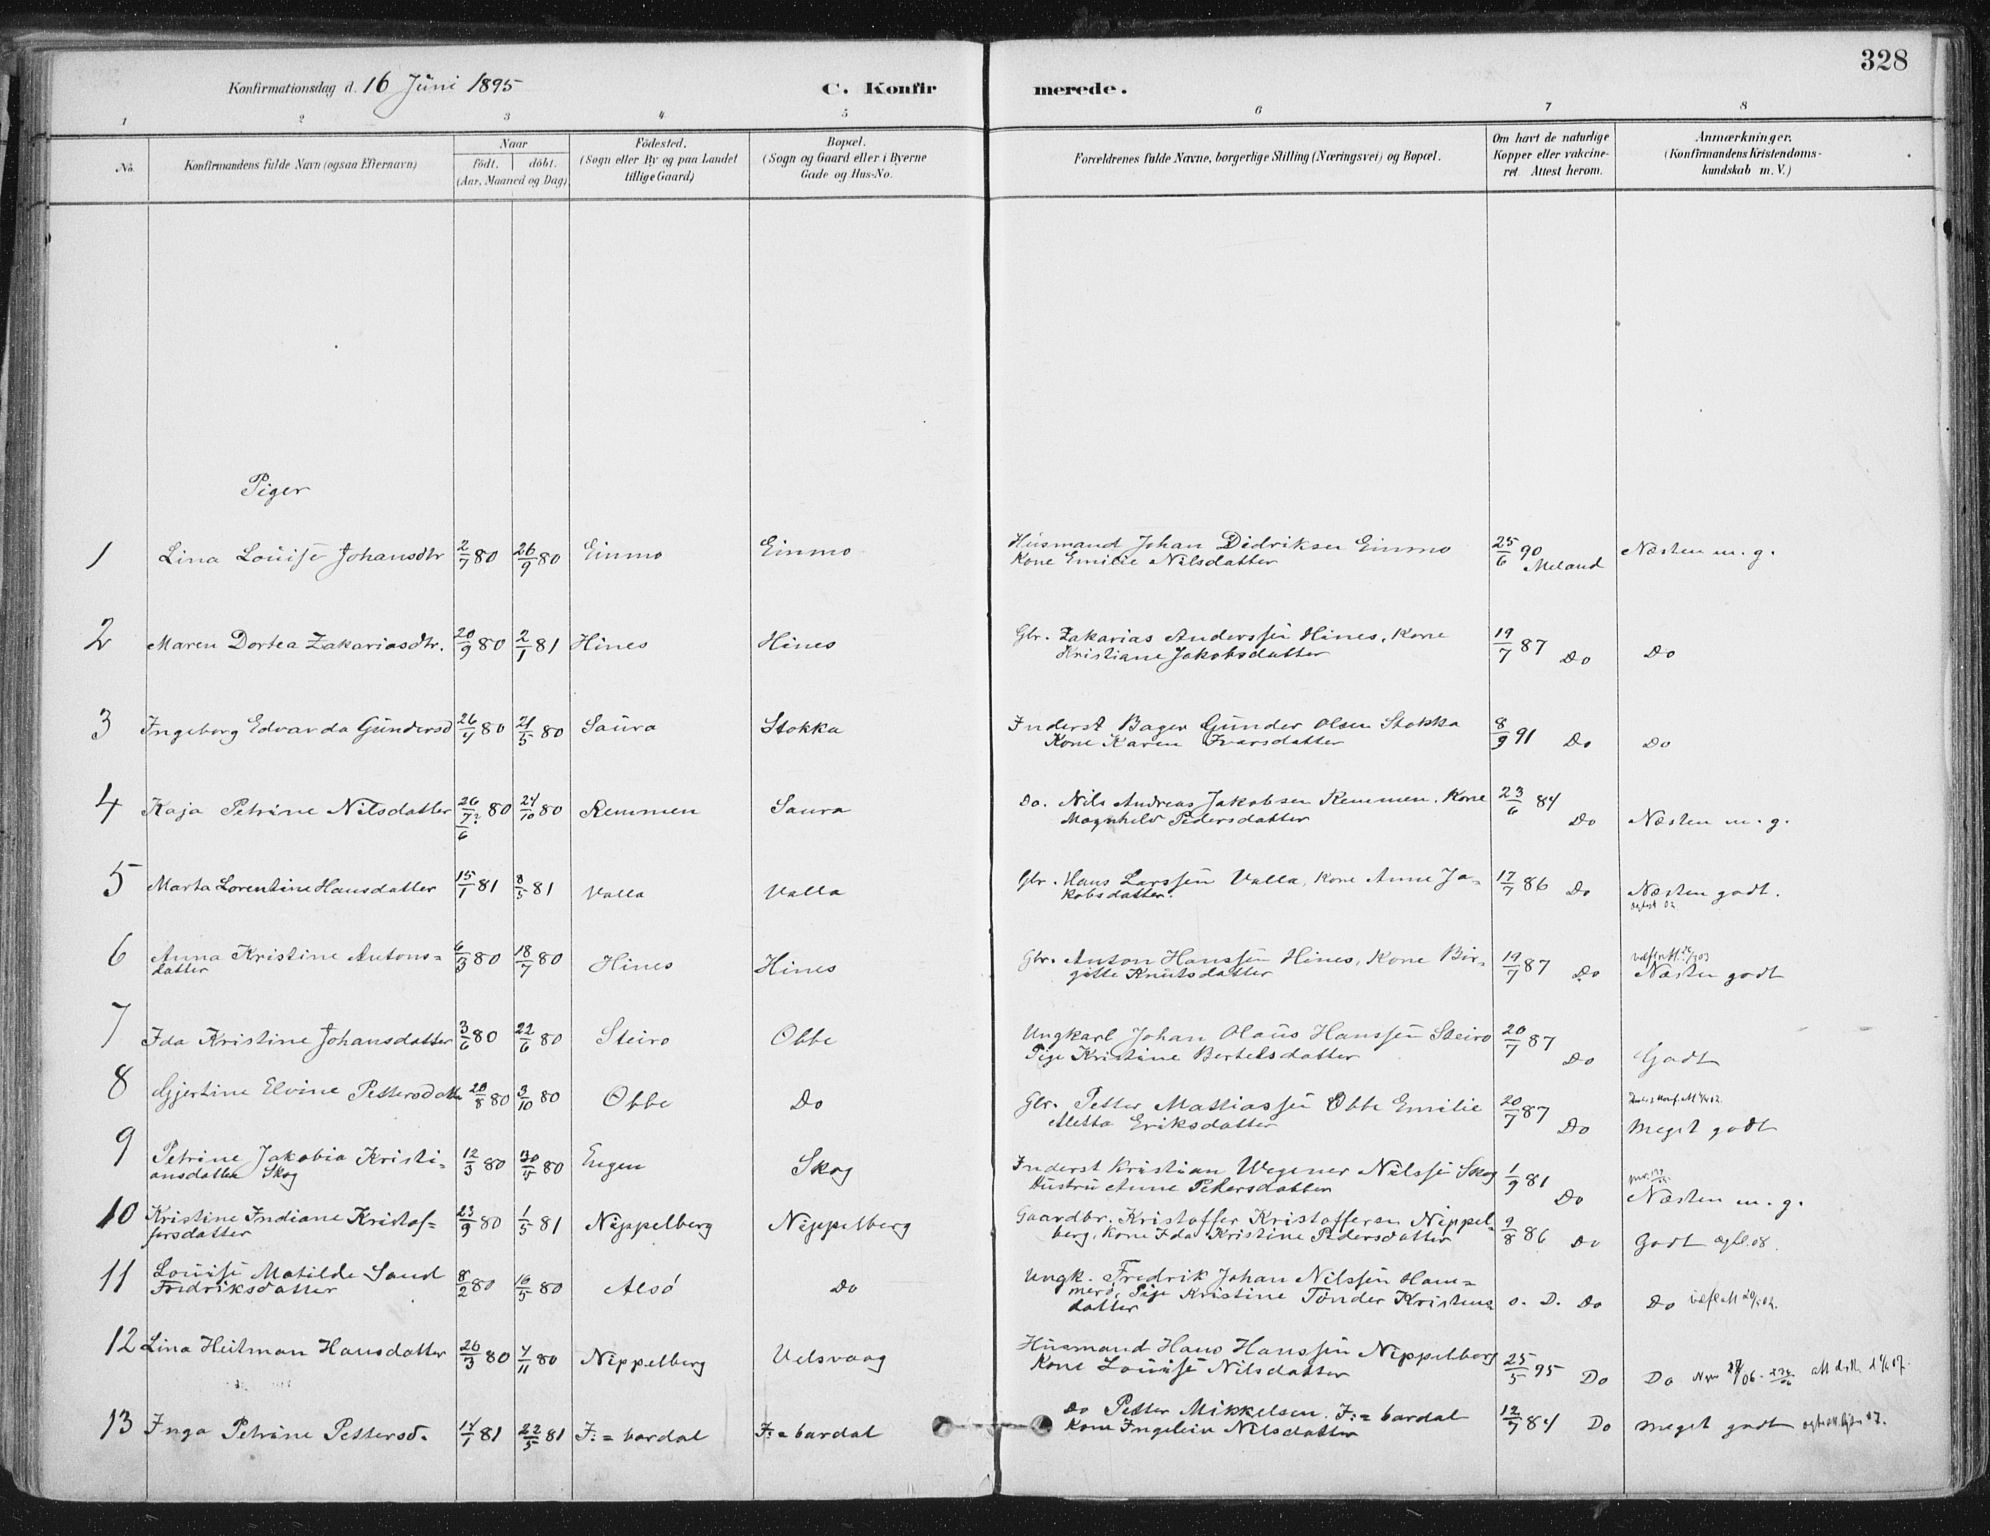 328
Konfirmationsdag d. 16 Juni 1895 C. Konfir merede.
1 2 3 4 5 6 7 8
No. Konfirmandens fulde Navn (ogsaa Efternavn) Naar födt. döbt. (Aar, Maaned og Dag) Födested. (Sogn eller By og paa Landet tillige Gaard) Bopæl. (Sogn og Gaard eller i Byerne Gade og Hus-No. Forældrenes fulde Navne, borgerlige Stilling (Næringsvei) og Bopæl. Om havt de naturlige Kopper eller vakcineret. Attest herom. Anmærkninger. (Konfirmandens Kristendomskundskab m. V.)
Piger
1 Lina Louise Johansdtr 2/7 80 26/9 80 Einmo Einmo Husmand Johan Didriksen Einmo Kone Emilie Nilsdatter 25/6 90 Meland Næsten m. g.
2 Maren Dortea Zakariasdtr. 20/9 80 2/1 81 Hines Hines Gbr. Zakarias Anderssen Hines, Kone Kristiane Jakobsdatter 19/7 87 Do Do
3 Ingeborg Edvarda Gundersd 26/4 80 21/5 80 Saura Stokka Inderst Bager Gunder Olsen Stokka Kone Karen Ivarsdatter 8/9 91 Do Do
4 Kaja Petrine Nilsdatter 26/7? 80 /6 24/10 80 Remmen Saura Do. Nils Andreas Jakobsen Remmen, Kone Magnhild Pedersdatter 23/6 84 Do Næsten m. g.
5 Marta Lorentine Hansdatter 15/1 81 8/5 81 Valla Valla Gbr. Hans Larssen Valla, Kone Anne Jakobsdatter. 17/7 86 Do Næsten godt.
6 Anna Kristine Antons= datter 6/3 80 18/7 80 Hines Hines Gbr. Anton Hanssen Hines, Kone Bir= gitte Knutsdatter 19/7 87 Do Næsten godt
7 Ida Kristine Johansdatter 3/6 80 22/6 80 Steiro Obbe Ungkarl Johan Olaus Hanssen Steiro Pige Kristine Bertelsdatter 20/7 87 Do Godt
8 Gjertine Elvine Pettersdatter 20/8 80 3/10 80 Obbe Do Gbr. Petter Mattiassen Obbe Emilie Aletta Eriksdatter 20/7 87 Do Meget godt
9 Petrine Jakobia Kristi= ansdatter Skog 12/3 80 30/5 80 Engen Skog Inderst Kristian Wegener Nilssen Skog Hustru Anne Petersdatter 1/9 81 Do Næsten m. g.
10 Kristine Indiane Kristof= fersdatter 23/9 80 1/5 81 Nippelberg Nippelberg Gaardbr. Kristoffer Kristoffersen Nippel= berg, Kone Ida Kristine Pedersdatter 9/8 86 Do Godt
11 Louise Matilde Sand Fredriksdatter 8/2 80 16/5 80 Alsö Do Ungk. Fredrik Johan Nilssen Ham= merö, Pige Kristine Tönder Kristens= datter o. D. Do Do
12 Lina Heitman Hansdatter 26/3 80 7/11 80 Nippelberg Velsvaag Husmand Hans Hanssen Nippelberg Kone Louise Nilsdatter 25/5 95 Do Do
13 Inga Petrine Pettersd. 14/1 81 22/5 81 I:=bardal I:=bardal Do Petter Mikkelsen. I:=bardal Kone Ingelein Nilsdatter 12/7 84 Do Meget godt